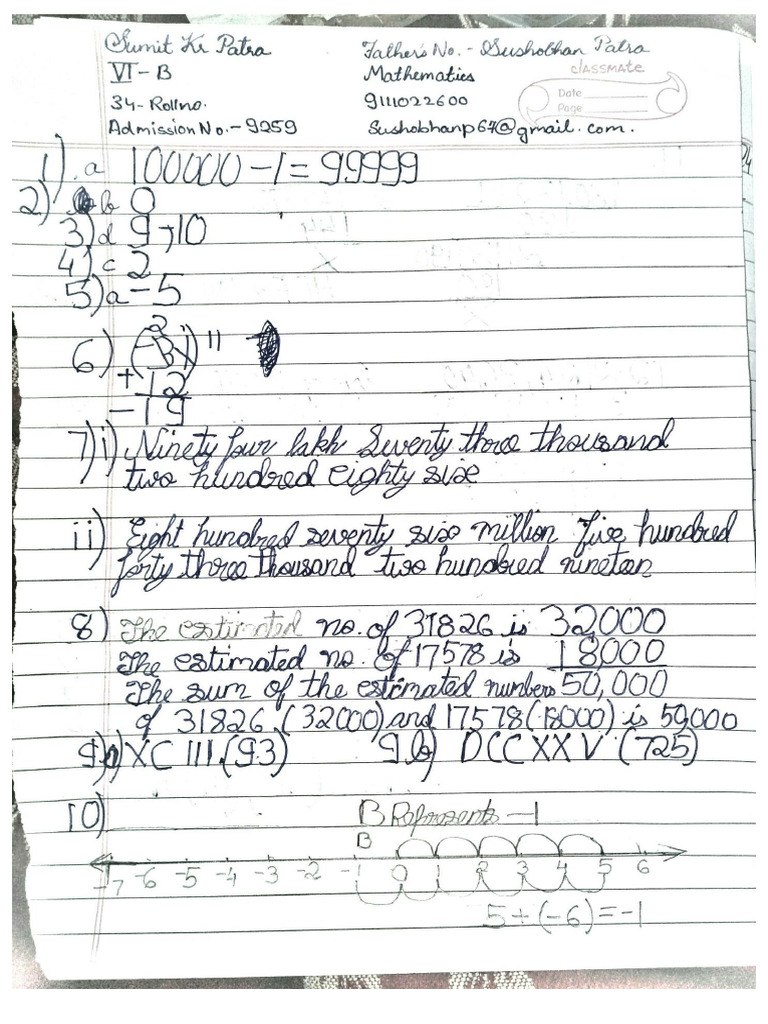 Sumit Kr Patra
Father's No. - Sushobhan Patra
VI - B
Mathematics
classmate
34 - Rollno.
9111022600
Date
Page
Admission No. - 9259
Sushobhanp67@gmail.com.
1) . a 100000 - 1 = 99999
2) b 0
3) d 9,10
4) c 2
5) a - 5
6)
+ 12
- 19
7) i) Ninety four lakh Seventy three thousand
two hundred eighty six
ii) Eight hundred seventy six million five hundred
forty three thousand two hundred nineteen
8) The estimated no. of 31826 is 32000
The estimated no. of 17578 is 18000
The sum of the estimated numbers 50,000
of 31826 (32000) and 17578 (18000) is 50,000
9) a) XC III (93) 9 b) DCC XX V (725)
10) B Represents - 1
B
-7 -6 -5 -4 -3 -2 -1 0 1 2 3 4 5 6
5 + (-6) = -1